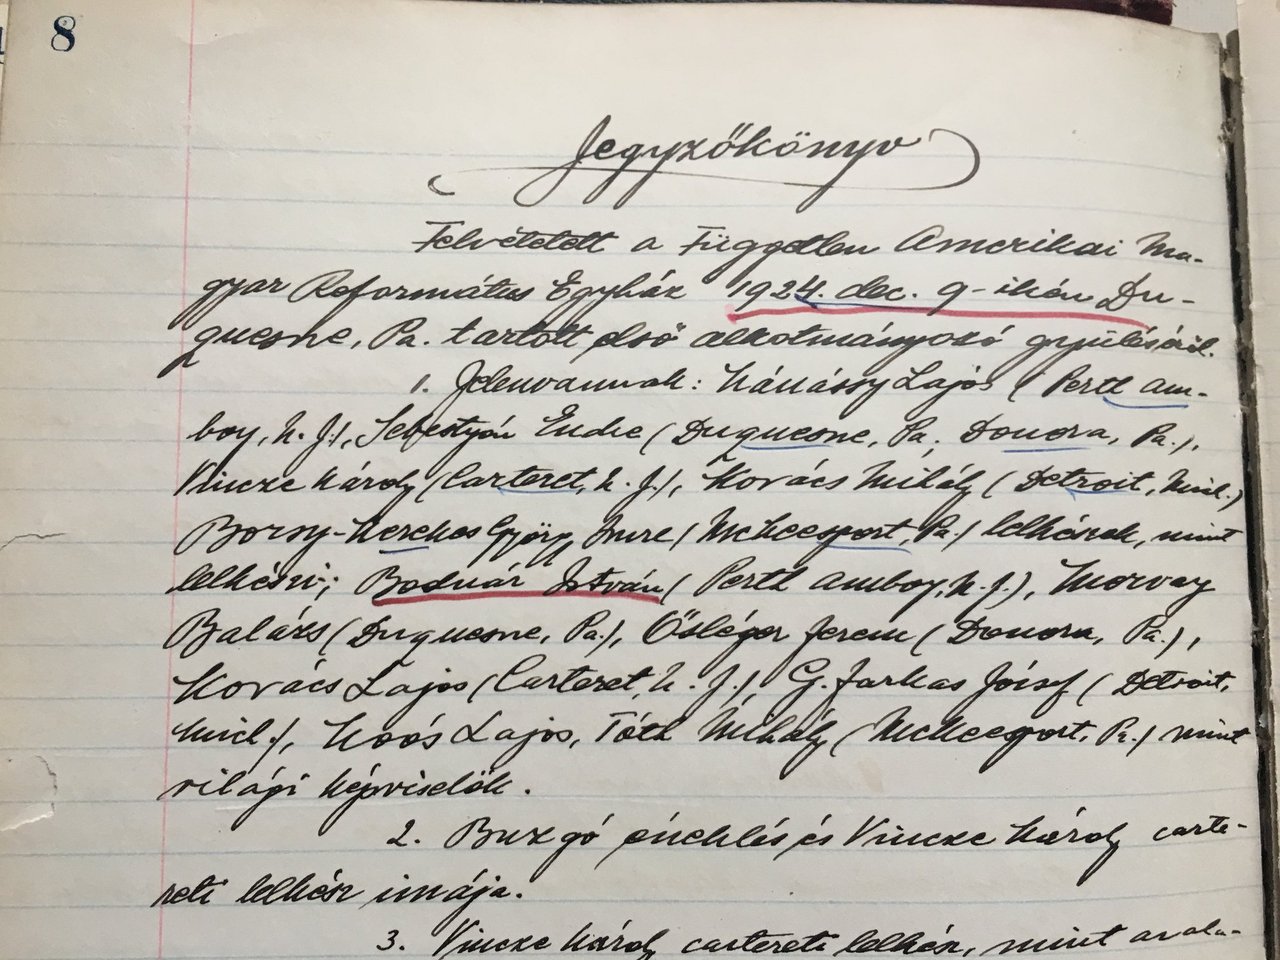 8
Jegyzőkönyv
Felvétetett a Független Amerikai Ma-
gyar Református Egyház 1924. dec. 9-ikén Du-
quesne, Pa. tartott első alkotmányozó gyűléséről.
1. Jelenvannak: Nánássy Lajos (Perth Am-
boy, N. J.), Sebestyén Endre (Duquesne, Pa, Donora, Pa.),
Vincze Károly (Carteret, N. J.), Kovács Mihály (Detroit, Mich.)
Borsy-Kerekes György, Imre (McKeesport, Pa.) lelkészek, mint
lelkészi; Bodnár István (Perth Amboy, N. J.), Morvay
Balázs (Duquesne, Pa.), Őslégor Jerem (Donora, Pa.),
Kovács Lajos (Carteret, N. J.), G. Farkas József (Detroit,
Mich.), Koós Lajos, Tóth Mihály (McKeesport, Pa.) mint
világi képviselők.
2. Buzgó éneklés és Vincze Károly carte-
reti lelkész imája.
3. Vincze Károly cartereti lelkész, mint az ala-